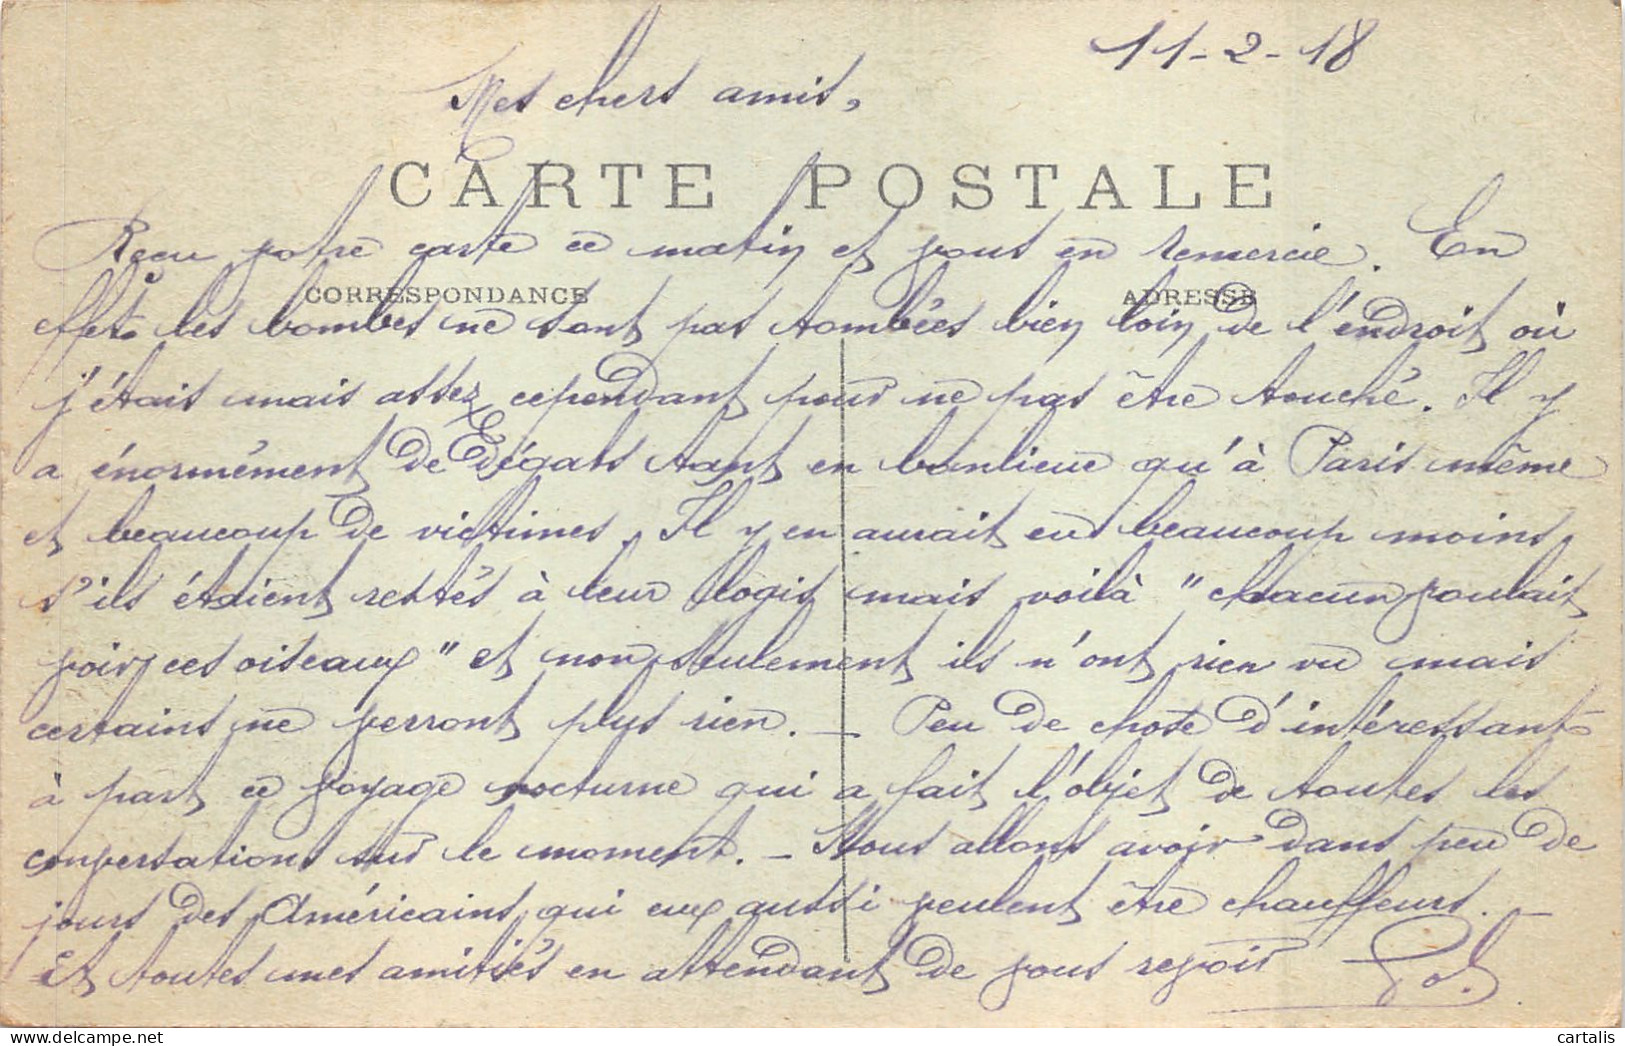 11-2-18
Mes chers amis,
CARTE POSTALE
Reçu votre carte ce matin et vous en remercie. En
CORRESPONDANCE ADRESSE
effet les bombes ne sont pas tombées bien loin de l'endroit où
j'étais mais assez cependant pour ne pas être touché. Il y
a énormément de dégats tant en banlieue qu'à Paris même
et beaucoup de victimes. Il y en aurait eu beaucoup moins
s'ils étaient restés à leur logis mais voilà "chacun voulait
voir ces oiseaux" et non seulement ils n'ont rien vu mais
certains ne verront plus rien. — Peu de chose d'intéressant
à part ce voyage nocturne qui a fait l'objet de toutes les
conversations sur le moment. — Nous allons avoir dans peu de
jours des Américains qui eux aussi veulent être chauffeurs. —
Et toutes mes amitiés en attendant de vous revoir
cartalis